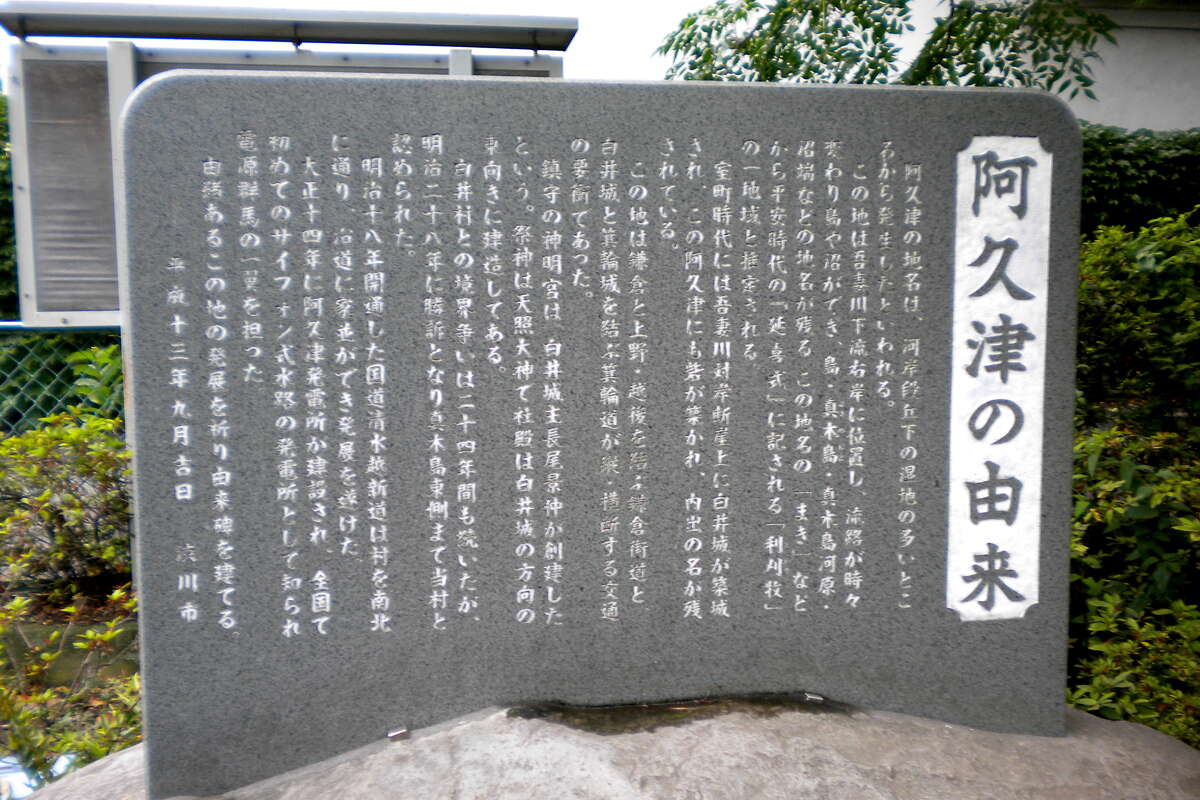 阿久津の由来
阿久津の地名は、河岸段丘下の湿地の多いとこ
ろから発生したといわれる。
この地は吾妻川下流右岸に位置し、流路が時々
変わり島や沼ができ、島・真木島・真木島河原・
沼端などの地名が残る この地名の「まき」など
から平安時代の「延喜式」に記される「利刈牧」
の一地域と推定される
室町時代には吾妻川対岸断崖上に白井城が築城
され、この阿久津にも砦が築かれ、内出の名が残
されている。
この地は鎌倉と上野・越後を結ぶ鎌倉街道と
白井城と箕輪城を結ぶ箕輪道が縦・横断する交通
の要衝であった。
鎮守の神明宮は、白井城主長尾景仲が創建した
という。祭神は天照大神で社殿は白井城の方向の
東向きに建造してある。
白井村との境界争いは二十四年間も続いたが、
明治二十八年に勝訴となり真木島東側まで当村と
認められた。
明治十八年開通した国道清水越新道は村を南北
に通り、沿道に家並ができ発展を遂げた
大正十四年に阿久津発電所が建設され、全国で
初めてのサイフォン式水路の発電所として知られ
電源群馬の一翼を担った
由緒あるこの地の発展を祈り由来碑を建てる。
平成十三年九月吉日 渋川市